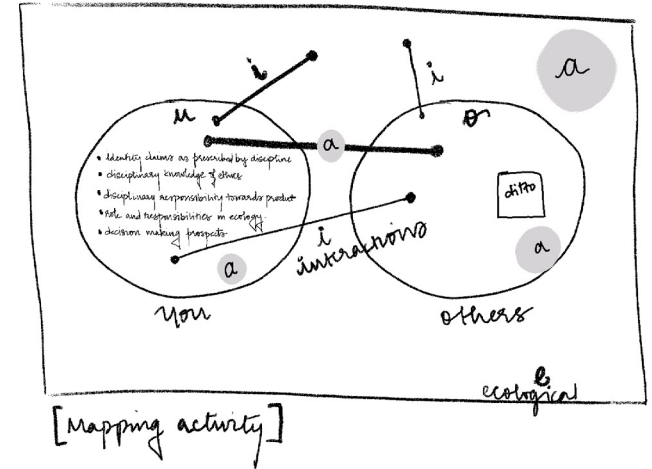 i
i
a
u
o
a
• Identity claims as prescribed by discipline
• disciplinary knowledge of ethics
• disciplinary responsibility towards product
• role and responsibilities in ecology
• decision making prospects
ditto
i
interactions
a
a
you
others
e
ecological
[Mapping activity]